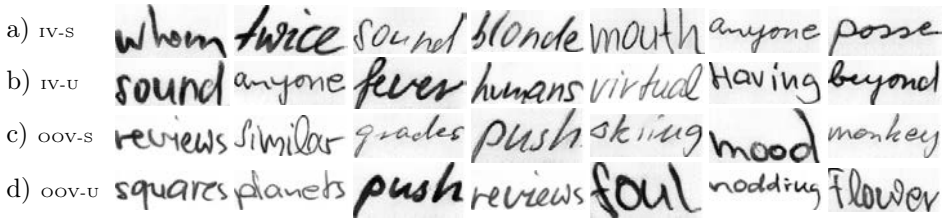 a) IV-S whom twice sound blonde mouth anyone posse
b) IV-U sound anyone fever humans virtual Having beyond
c) OOV-S reviews similar grades push skiing mood monkey
d) OOV-U squares planets push reviews foul nodding Flower